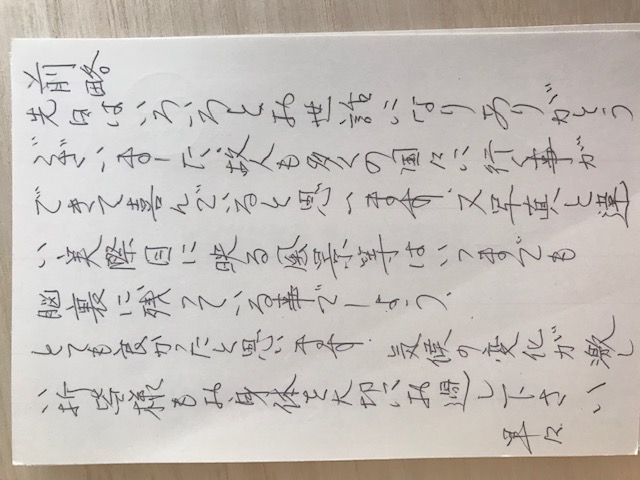 前略
先日はいろいろとお世話になりありがとう
ございました、故人も多くの国々に行く事が
できて喜んでいると思います、又写真と違
い実際目に映る風景等はいつまでも
脳裏に残っている事でしょう、
とても良かったと思います 気候の変化が激し
い折皆様もお身体を大切にお過し下さい
早々